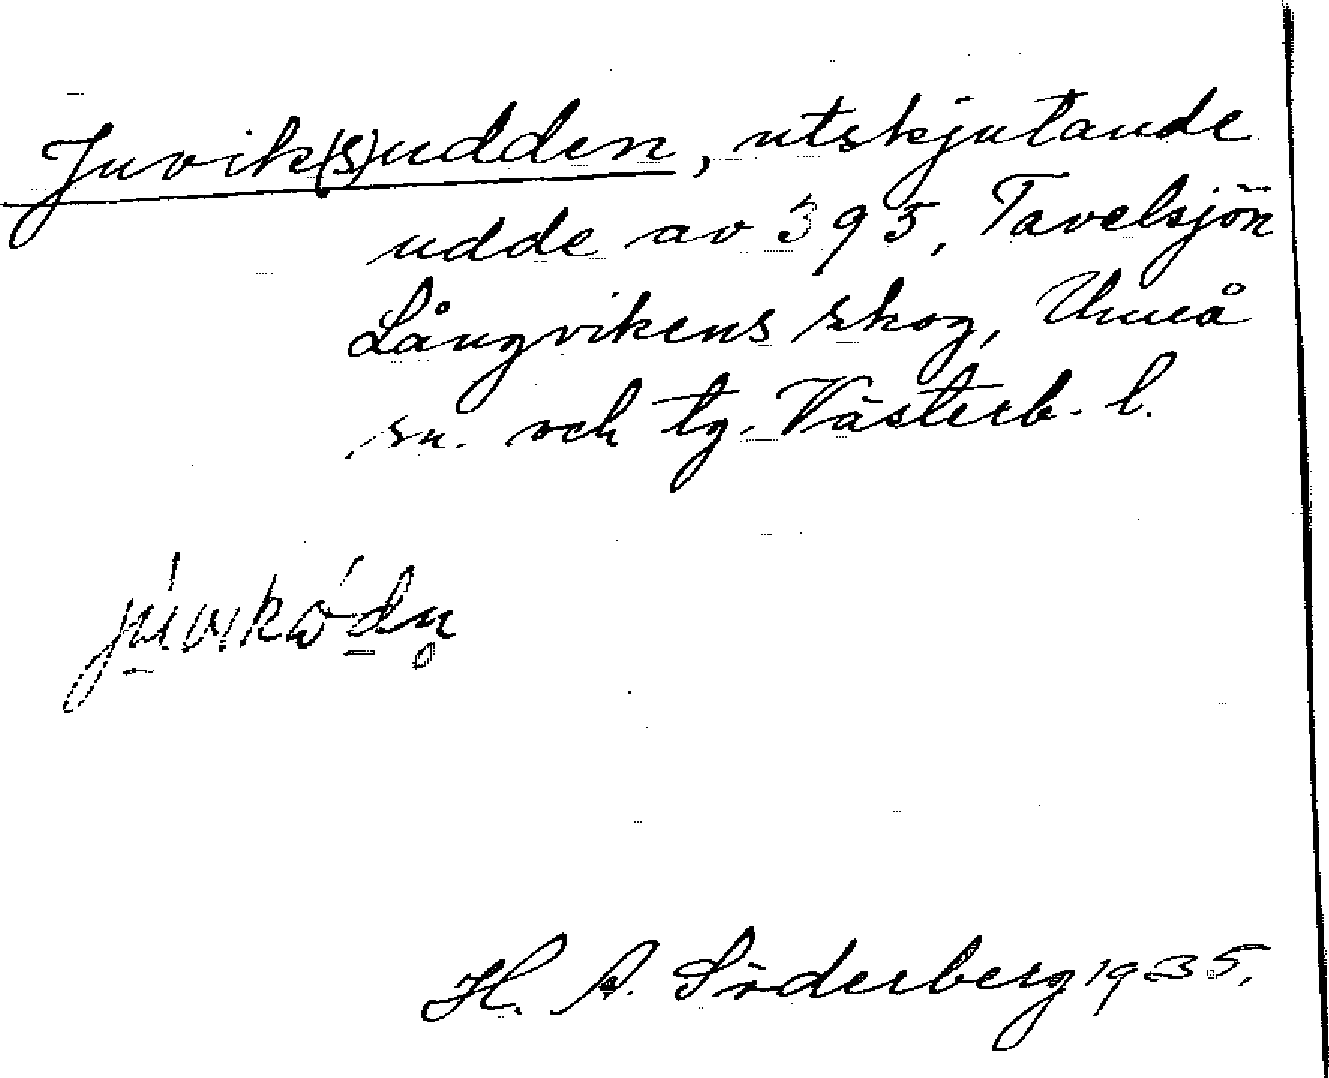 Juvik(s)udden, utskjutande
udde av 395, Tavelsjön
Långvikens skog, Umeå
sn. och tg. Västerb. l.
H. A. Söderberg 1935.